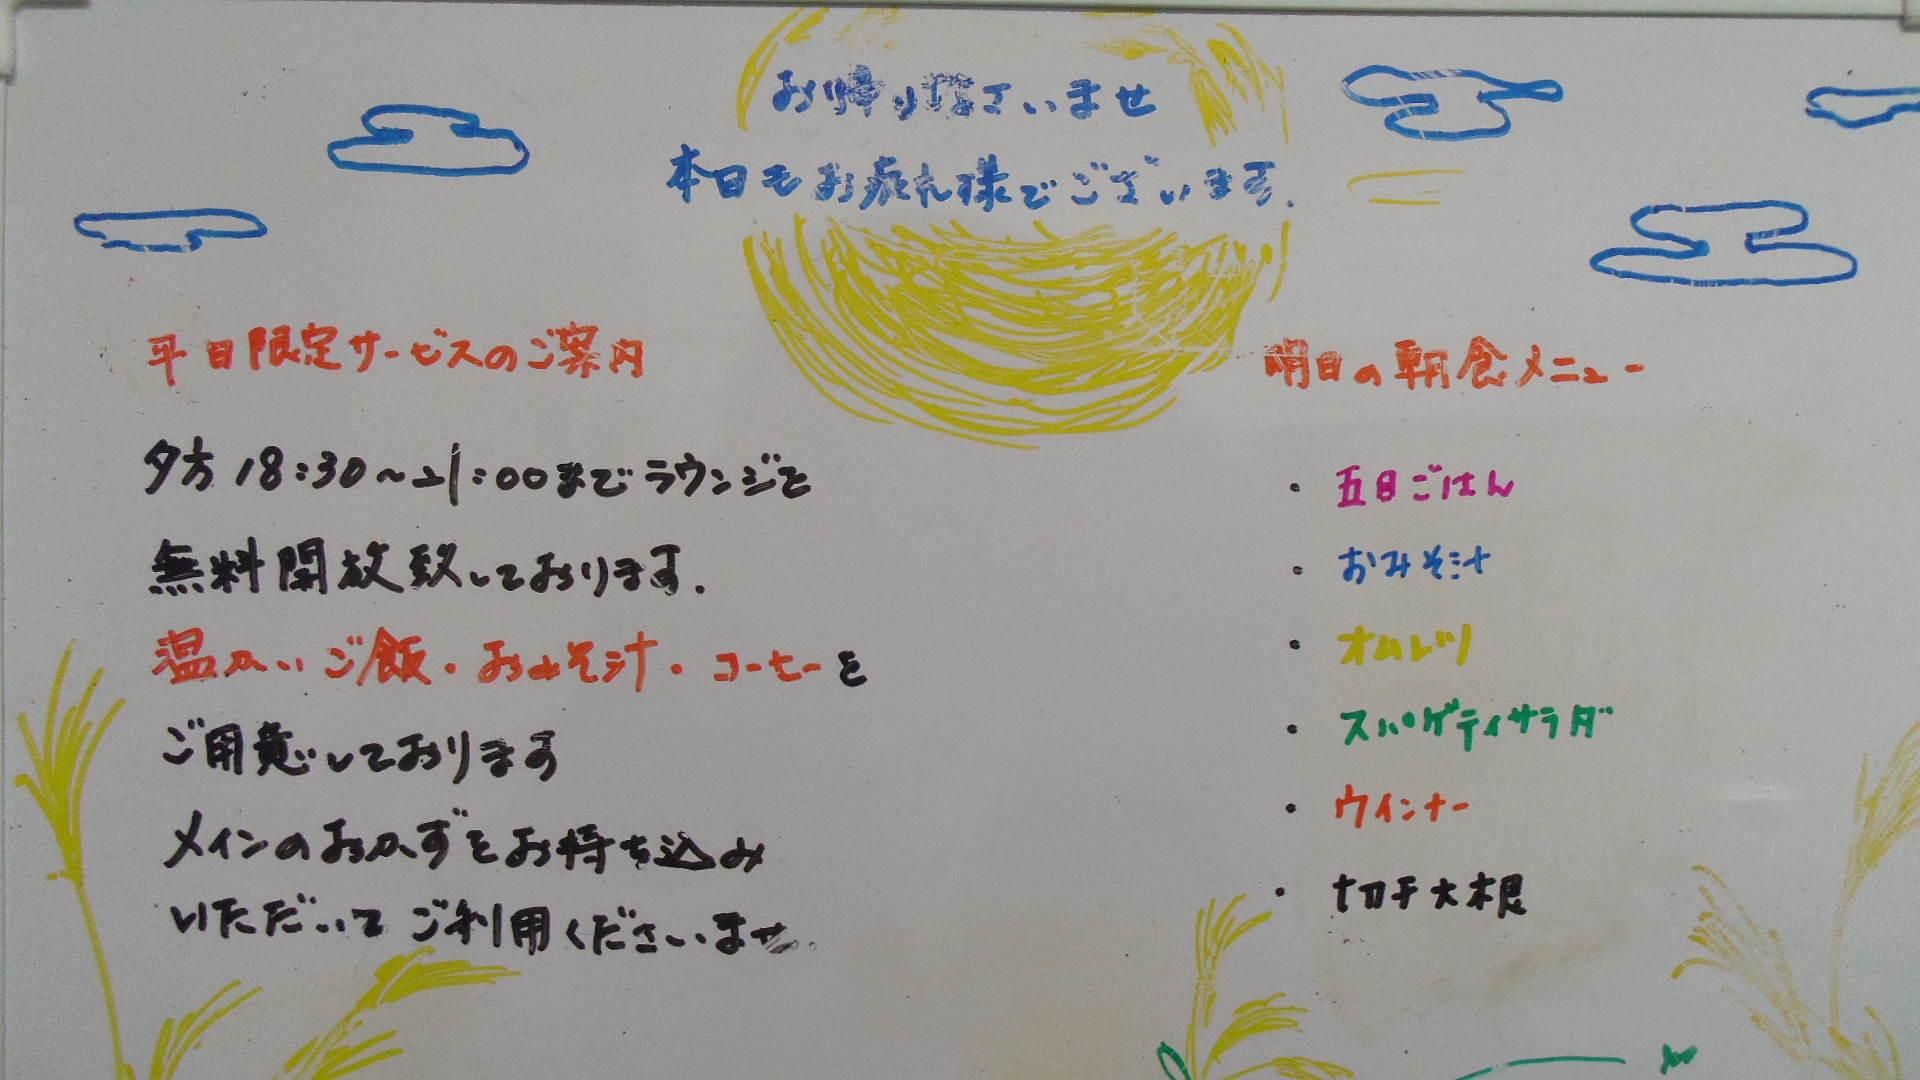 お帰り なさいませ
本日もお疲れ様でございます.
平日限定サービスのご案内
夕方 18:30～21:00までラウンジを
無料開放致しております.
温かいご飯・おみそ汁・コーヒーを
ご用意しております
メインのおかずをお持ち込み
いただいてご利用くださいませ.
明日の朝食メニュー
・五目ごはん
・おみそ汁
・オムレツ
・スパゲティサラダ
・ウインナー
・切干大根